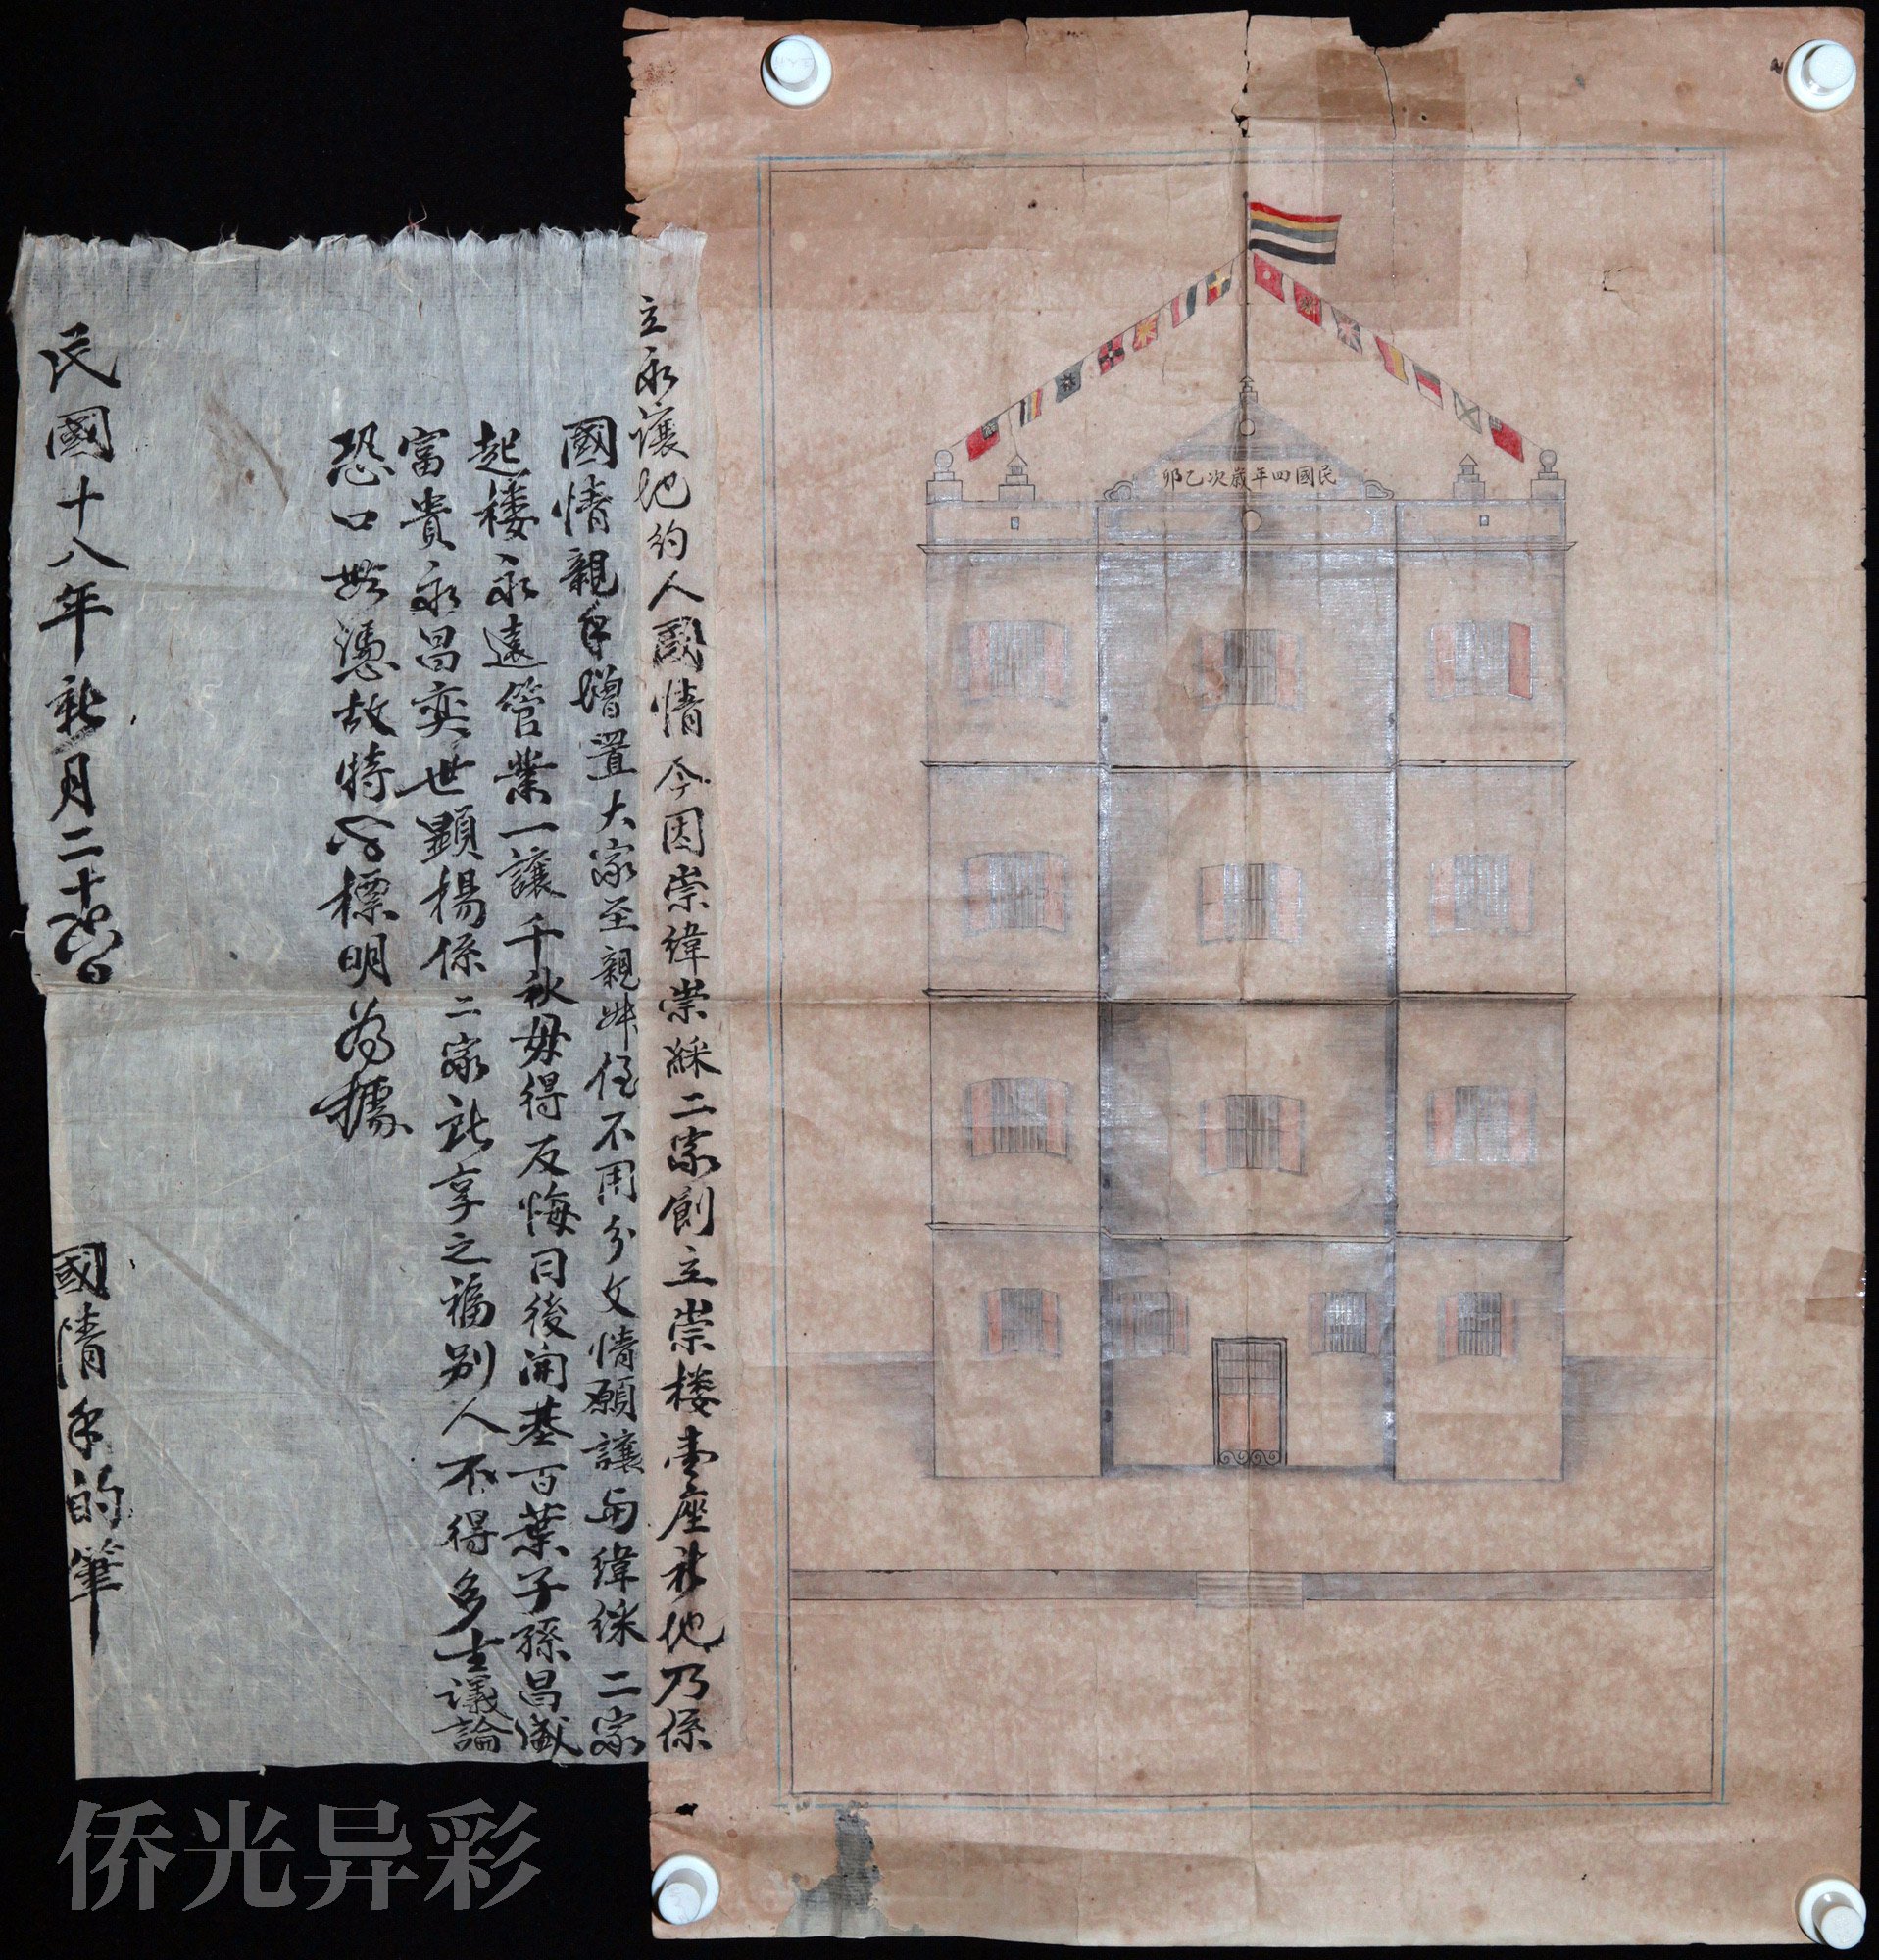 民國四年歲次乙卯
立永讓地約人國情今因崇緯崇綵二家創立崇楼壹座社地乃係
國情親手增置大家至親妹侄不用分文情願讓与緯綵二家
起楼永遠管業一讓千秋毋得反悔日後開基百葉子孫昌盛
富貴永昌奕世顕楊係二家訴享之福别人不得多生議論
恐口無憑故特字標明為據
民國十八年新月二十 日
國情手的筆
侨光异彩